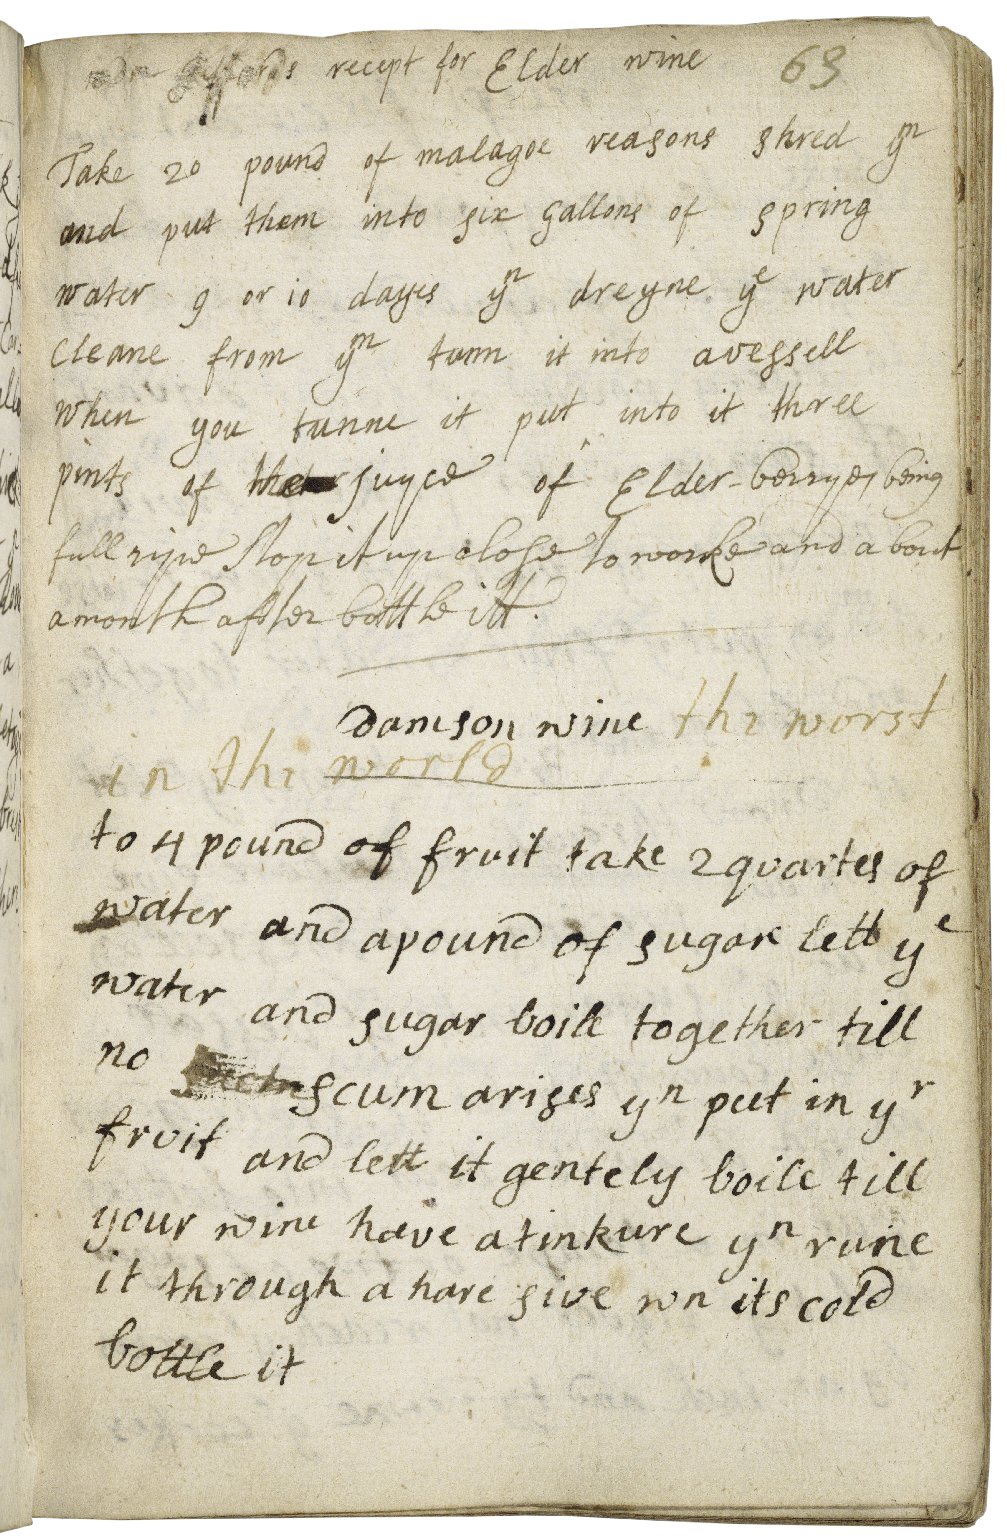 recept for Elder wine 63
Take 20 pound of malagoe reasons shred ym
and put them into six gallons of spring
water 9 or 10 dayes yn dreyne ye water
Cleane from ym tunn it into avessell
when you tunne it put into it three
pints of juyce of Elder-berryes being
full ripe stop it up close to worke and about
a month after bottle itt.
Damson wine the worst
in the world
to 4 pound of fruit take 2 quartes of
water and apound of sugar lett ye
water and sugar boile together till
no scum arises yn put in yr
fruit and lett it gentely boile till
your wine have atinkure yn rune
it through a hare sive wn its cold
bottle it